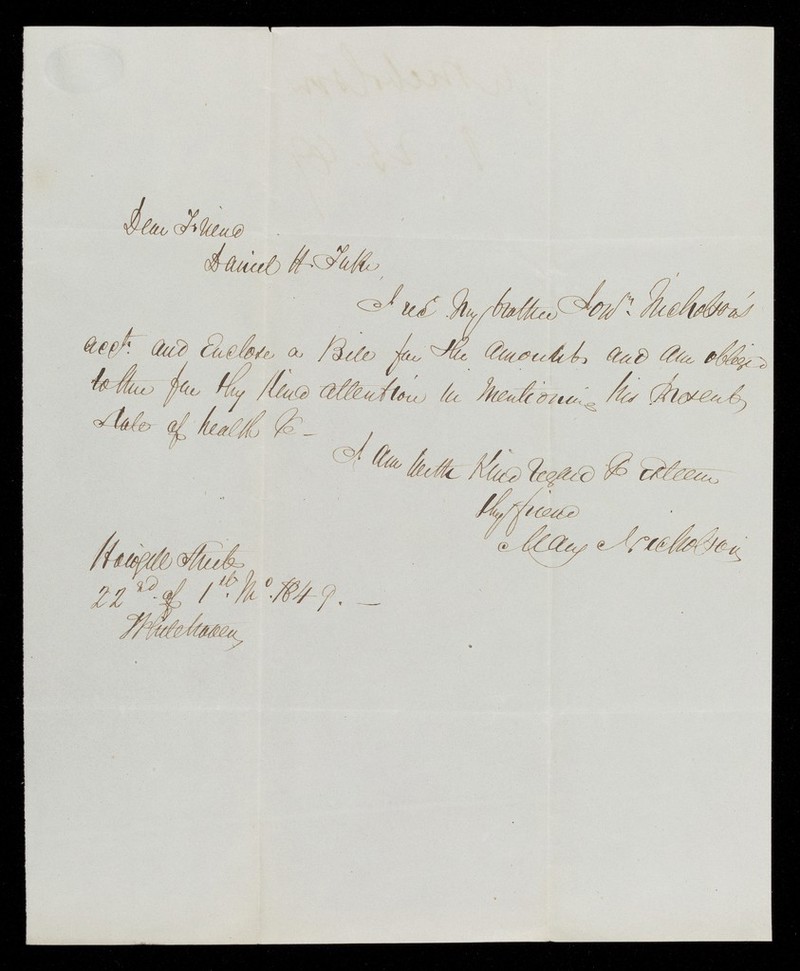 Dear Friend
Daniel H. Tuke,
I recd. My brother Jonn. Nicholson's
acct. and Enclose a Bill for the amount and am obliged
to thee for thy Kind attention in Mentioning his Present
State of health &c -
I am with Kind regard & esteem
thy friend
Mary Nicholson
Howgill Street
22nd. of 1st. Mo. 1849. -
Whitehaven